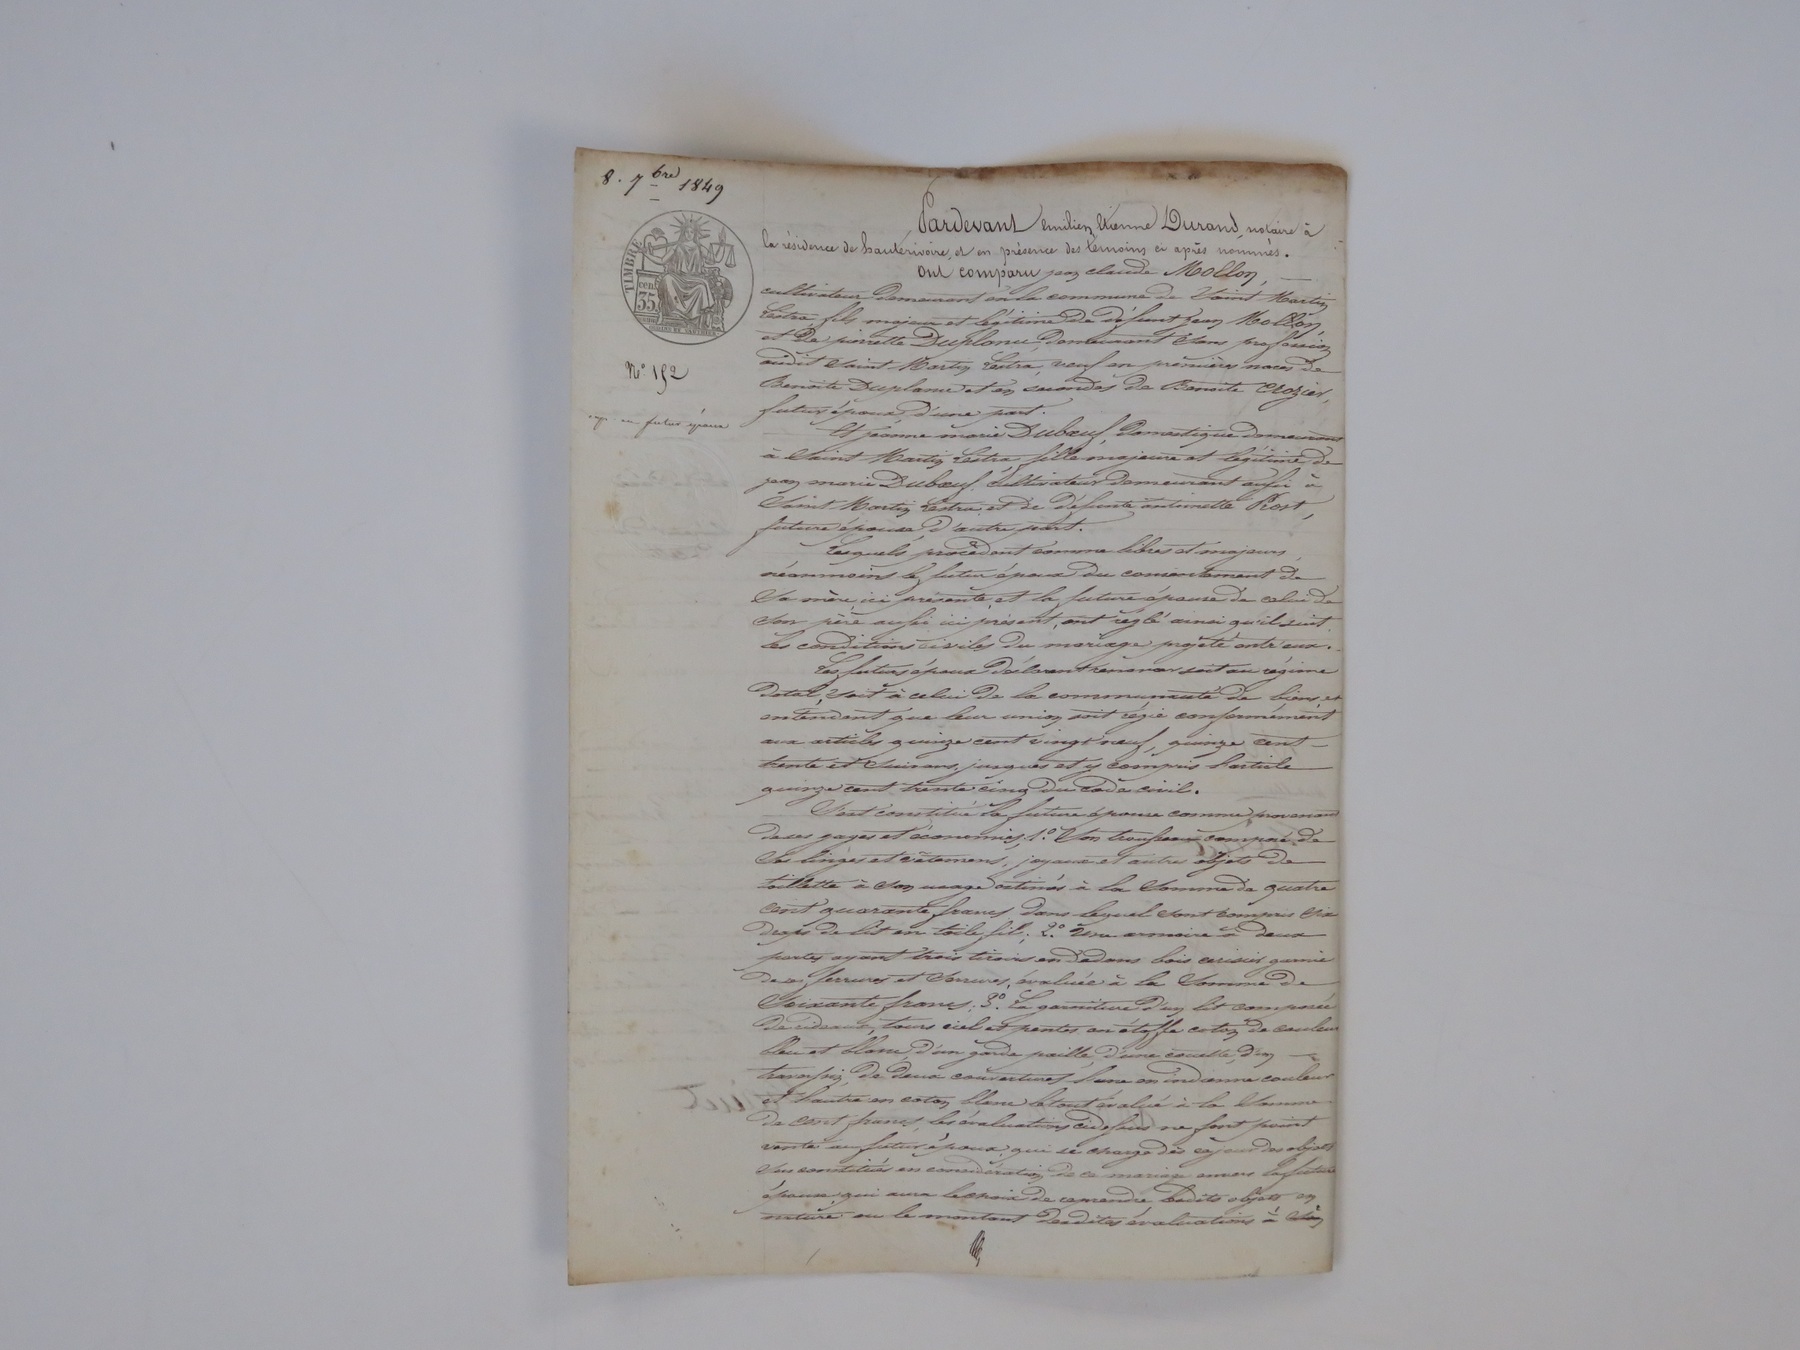 8. 7bre 1849
TIMBRE
cen.
35
N° 152
exp. au futur époux
Pardevant Emilien Etienne Durand, notaire à
la résidence de hauterivoire, et en présence des témoins ci après nommés.
Ont comparu jean claude Mollon,
cultivateur demeurant en la commune de Saint Martin
Lestra fils majeur et légitime de défunt jean Mollon,
et de pierrette Duplanu, demeurant sans profession
audit Saint Martin Lestra, veuf en premières noces de
Benoite Duplanu et en secondes de Benoite Crozier,
futur époux, d'une part.
Et jeanne marie Dubœuf, domestique demeurant
à Saint Martin Lestra fille majeure et légitime de
jean marie Dubœuf, cultivateur demeurant aussi à
Saint Martin Lestra, et de défunte antoinette Rost,
future épouse, d'autre part.
Lesquels procédant comme libres et majeurs,
néanmoins le futur époux du consentement de
Sa mère, ici présente, et la future épouse de celui de
Son père aussi ici présent, ont réglé ainsi qu'il suit
les conditions civiles du mariage projeté entr'eux.
Les futurs époux déclarent renoncer soit au régime
dotal, soit à celui de la communauté de biens, et
entendent que leur union soit régie conformément
aux articles quinze cent vingt neuf, quinze cent
trente et suivans, jusques et y compris l'article
quinze cent trente cinq du code civil.
S'est constitué la future épouse comme provenant
de ses gages et économies, 1° Son trousseau composé de
Ses linges et vêtemens, joyaux et autres objets de
toilette à son usage estimés à la somme de quatre
cent quarante francs, dans lequel sont compris six
draps de lit en toile fil; 2° Une armoire à deux
portes ayant trois tiroirs en dedans bois cerisier garnie
de ses ferrures et serrures, évaluée à la Somme de
Soixante francs; 3° La garniture d'un lit composée
de rideaux, tours ciel et pentes en étoffe coton de couleur
bleu et blanc, d'un garde paille, d'une couette, d'un
traversin, de deux couvertures l'une en indienne couleur
et l'autre en coton blanc le tout évalué à la Somme
de cent francs, les évaluations cidessus ne font point
vente au futur époux qui se charge dès cejour des objets
sus constitués en considération de ce mariage envers la future
épouse, qui aura le choix de reprendre lesdits objets en
nature ou le montant desdites évaluations à Son